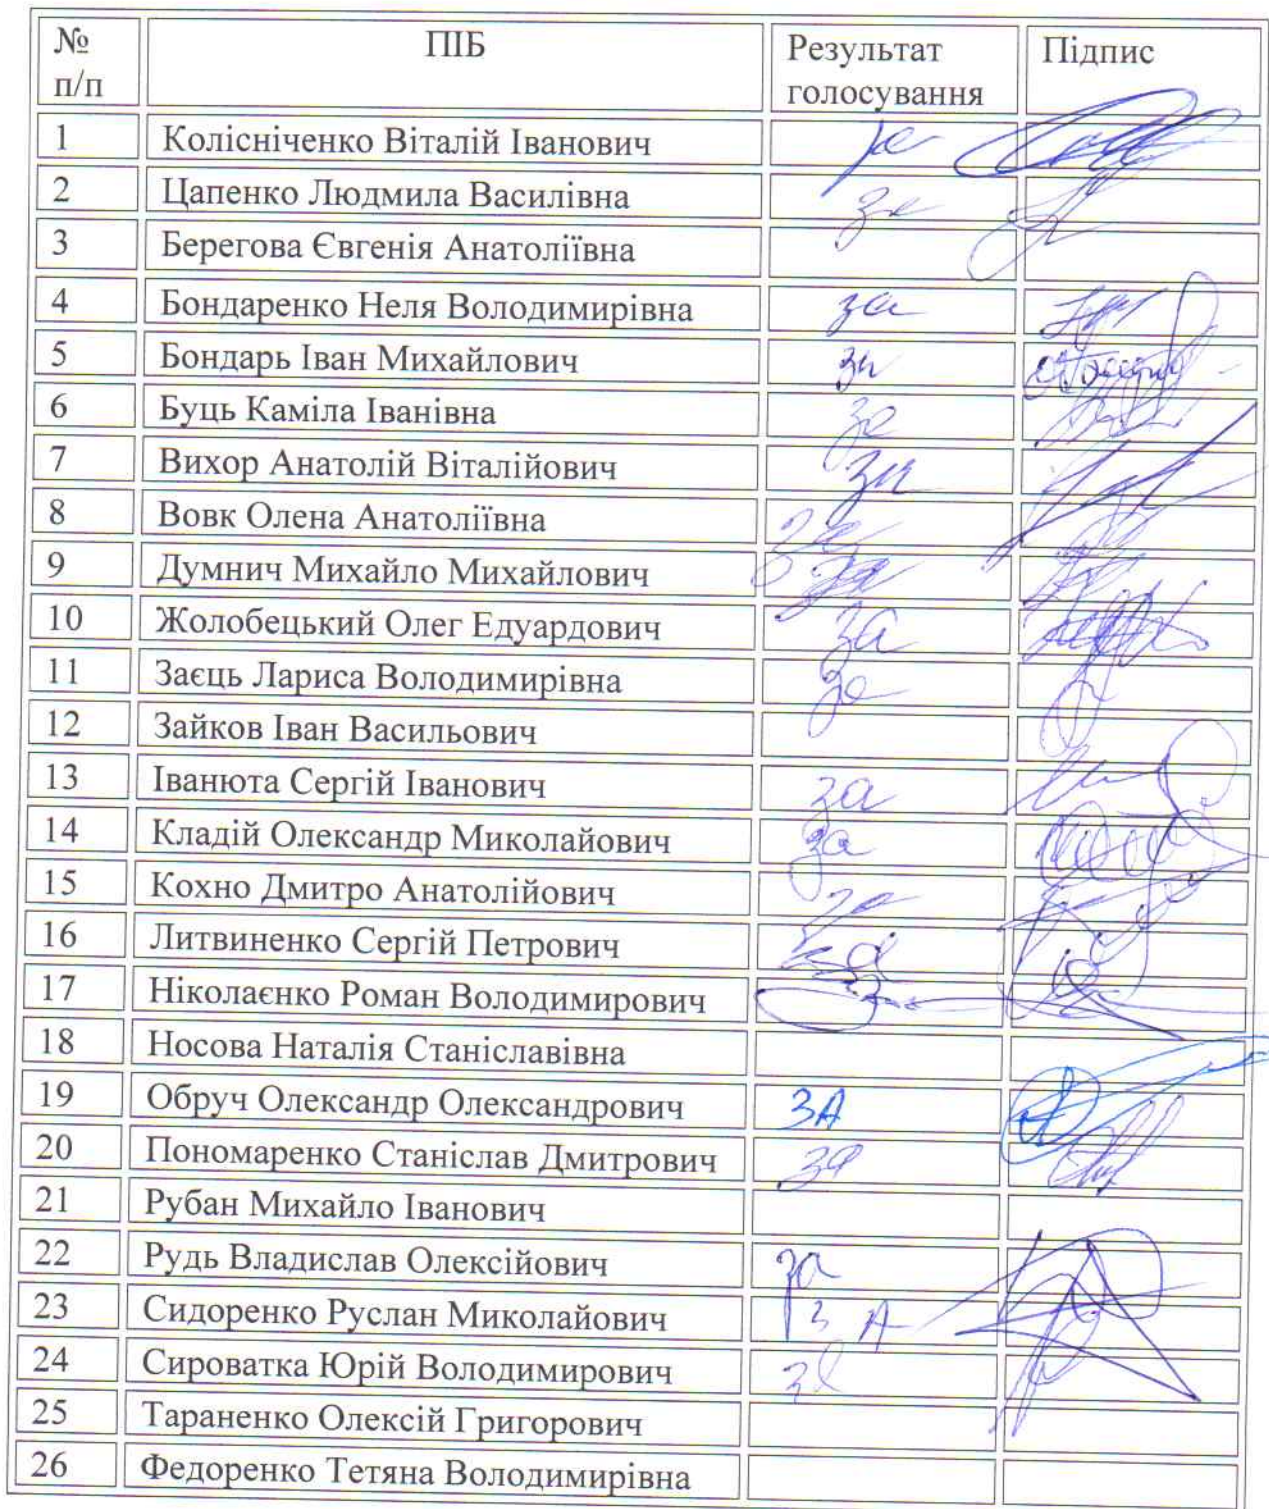 № п/п ПІБ Результат голосування Підпис
1 Колісніченко Віталій Іванович за
2 Цапенко Людмила Василівна за
3 Берегова Євгенія Анатоліївна
4 Бондаренко Неля Володимирівна за
5 Бондарь Іван Михайлович за
6 Буць Каміла Іванівна за
7 Вихор Анатолій Віталійович за
8 Вовк Олена Анатоліївна за
9 Думнич Михайло Михайлович за
10 Жолобецький Олег Едуардович за
11 Заєць Лариса Володимирівна за
12 Зайков Іван Васильович
13 Іванюта Сергій Іванович за
14 Кладій Олександр Миколайович за
15 Кохно Дмитро Анатолійович за
16 Литвиненко Сергій Петрович за
17 Ніколаєнко Роман Володимирович
18 Носова Наталія Станіславівна
19 Обруч Олександр Олександрович ЗА
20 Пономаренко Станіслав Дмитрович за
21 Рубан Михайло Іванович
22 Рудь Владислав Олексійович за
23 Сидоренко Руслан Миколайович З А
24 Сироватка Юрій Володимирович за
25 Тараненко Олексій Григорович
26 Федоренко Тетяна Володимирівна